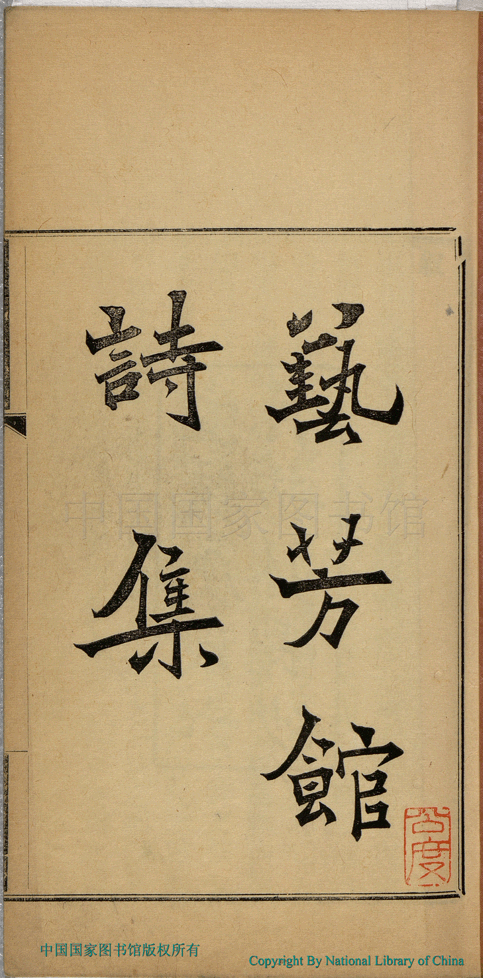 藝芳館
詩集
公度
中国国家图书馆
中国国家图书馆版权所有
Copyright By National Library of China